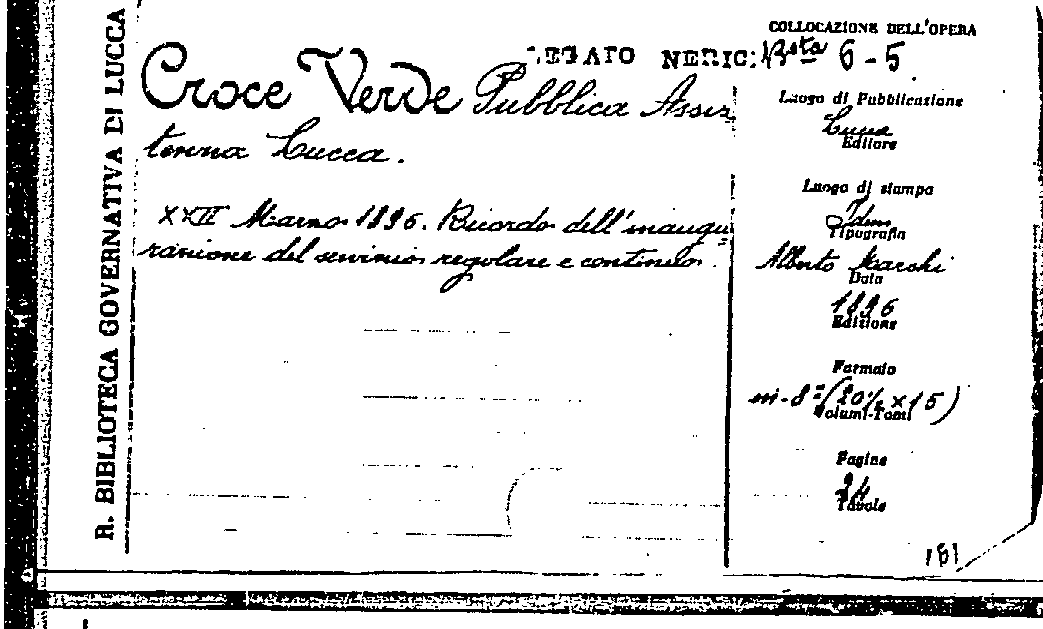 R. BIBLIOTECA GOVERNATIVA DI LUCCA
COLLOCAZIONE DELL'OPERA
LEGATO NERICI Bsta 6-5
Croce Verde Pubblica Assis
tenza Lucca.
XXII Marzo 1896. Ricordo dell'inaugu
razione del servizio regolare e continuo.
Luogo di Pubblicazione
Lucca
Editore
Luogo di stampa
Idem
Tipografia
Alberto Marchi
Data
1896
Edizione
Formato
in-8° (20½ × 15)
Volumi-Tomi
Pagine
24
Tavole
181